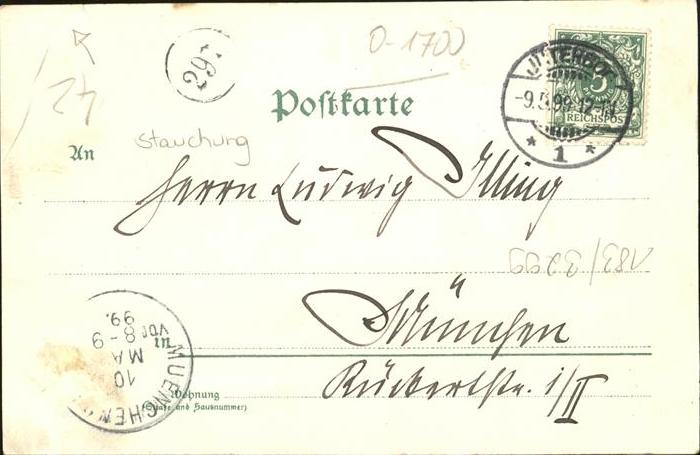 0-1700
291
42
JÜTERBOG
-9.5.99.12-1N.
* 1 *
5
REICHSPOST
Postkarte
Stauchung
An
Herrn Ludwig Illing
183/3299
in
München
Rückertstr. 1/II
Wohnung
(Straße und Hausnummer)
MUENCHEN
10
MA
8-9
VOR
99.